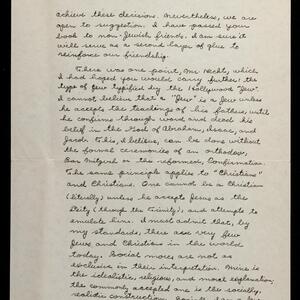 achieve these decisions. Nevertheless, we are
open to suggestion. I have passed your
book to non-Jewish friends. I am sure it
will serve as a second large of glue to
reinforce our friendship.
There was one point, Mr. Hecht, which
I had hoped you would carry further: the
type of Jew typified by the Hollywood "Jew".
I cannot believe that a "Jew" is a Jew unless
he accepts the teachings of his fathers, until
he confirms through word and deed his
belief in the God of Abraham, Isaac, and
Jacob. This, I believe, can be done without
the formal ceremonies of an orthodox,
Bar Mitzvah or the reformed, Confirmation.
The same principle applies to "Christians"
and Christians. One cannot be a Christian
(literally) unless he accepts Jesus as the
Deity (through the Trinity), and attempts to
emulate him. I must admit that, by
my standards, there are very few
Jews and Christians in the world
today. Social mores are not as
exclusive in their interpretation. Mine is
the idealistic, religious, and moral explanation;
the commonly accepted one is the socially,
realistic construction.